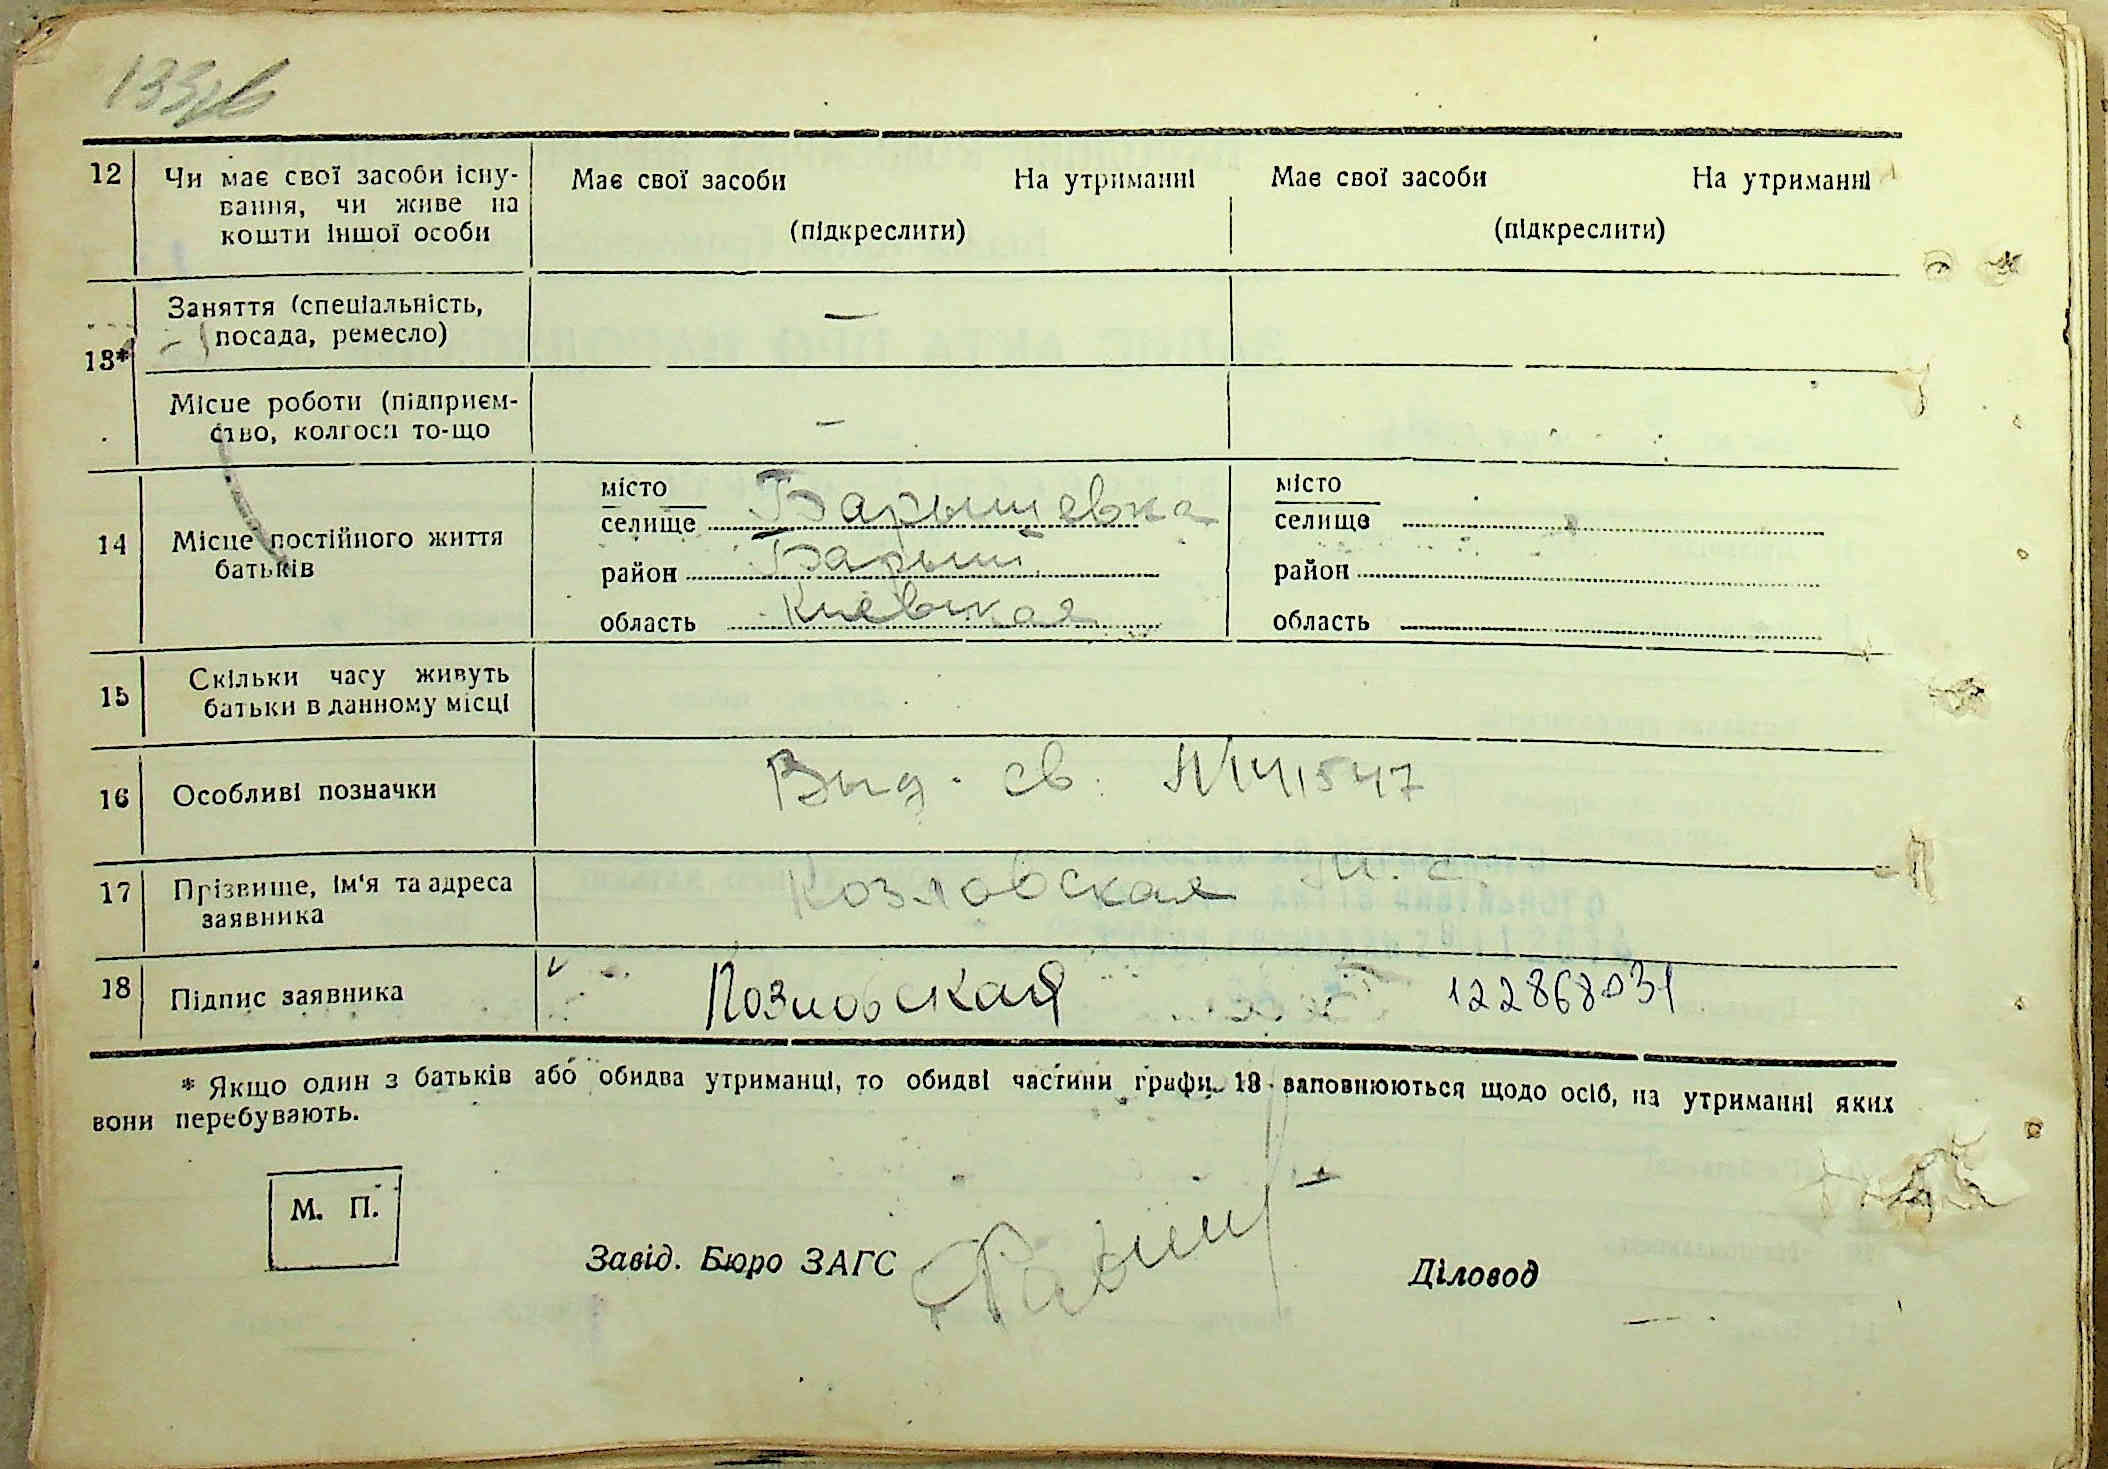 12 Чи має свої засоби існу- Має свої засоби На утриманні Має свої засоби На утриманні
вання, чи живе на
кошти іншої особи (підкреслити) (підкреслити)
Заняття (спеціальність, —
13* посада, ремесло)
Місце роботи (підприєм- —
ство, колгосп то-що
місто Барышевка місто
селище селище
14 Місце постійного життя
батьків район Барыш район
область Киевская область
15 Скільки часу живуть
батьки в данному місці
16 Особливі позначки Выд. св. №141547
17 Прізвище, ім'я та адреса Козловская
заявника
18 Підпис заявника Козловская 122868031
* Якщо один з батьків або обидва утриманці, то обидві частини графи 13 заповнюються щодо осіб, на утриманні яких
вони перебувають.
М. П.
Завід. Бюро ЗАГС Діловод